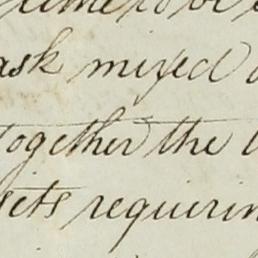 time to be
ask mixed
together the
sets requirin